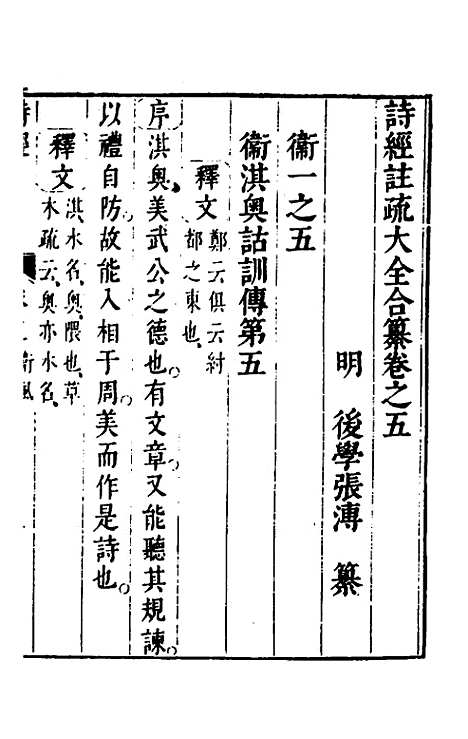 詩經註疏大全合纂卷之五
明　後學張溥　纂
衞一之五
衞淇奧詁訓傳第五
釋文
鄭云俱云紂
都之東也
序淇奧美武公之德也。有文章又能聽其規諫。
以禮自防故能入相于周。美而作是詩也。
釋文
淇水名奧隈也草
木疏云奧亦水名
詩經
衛風